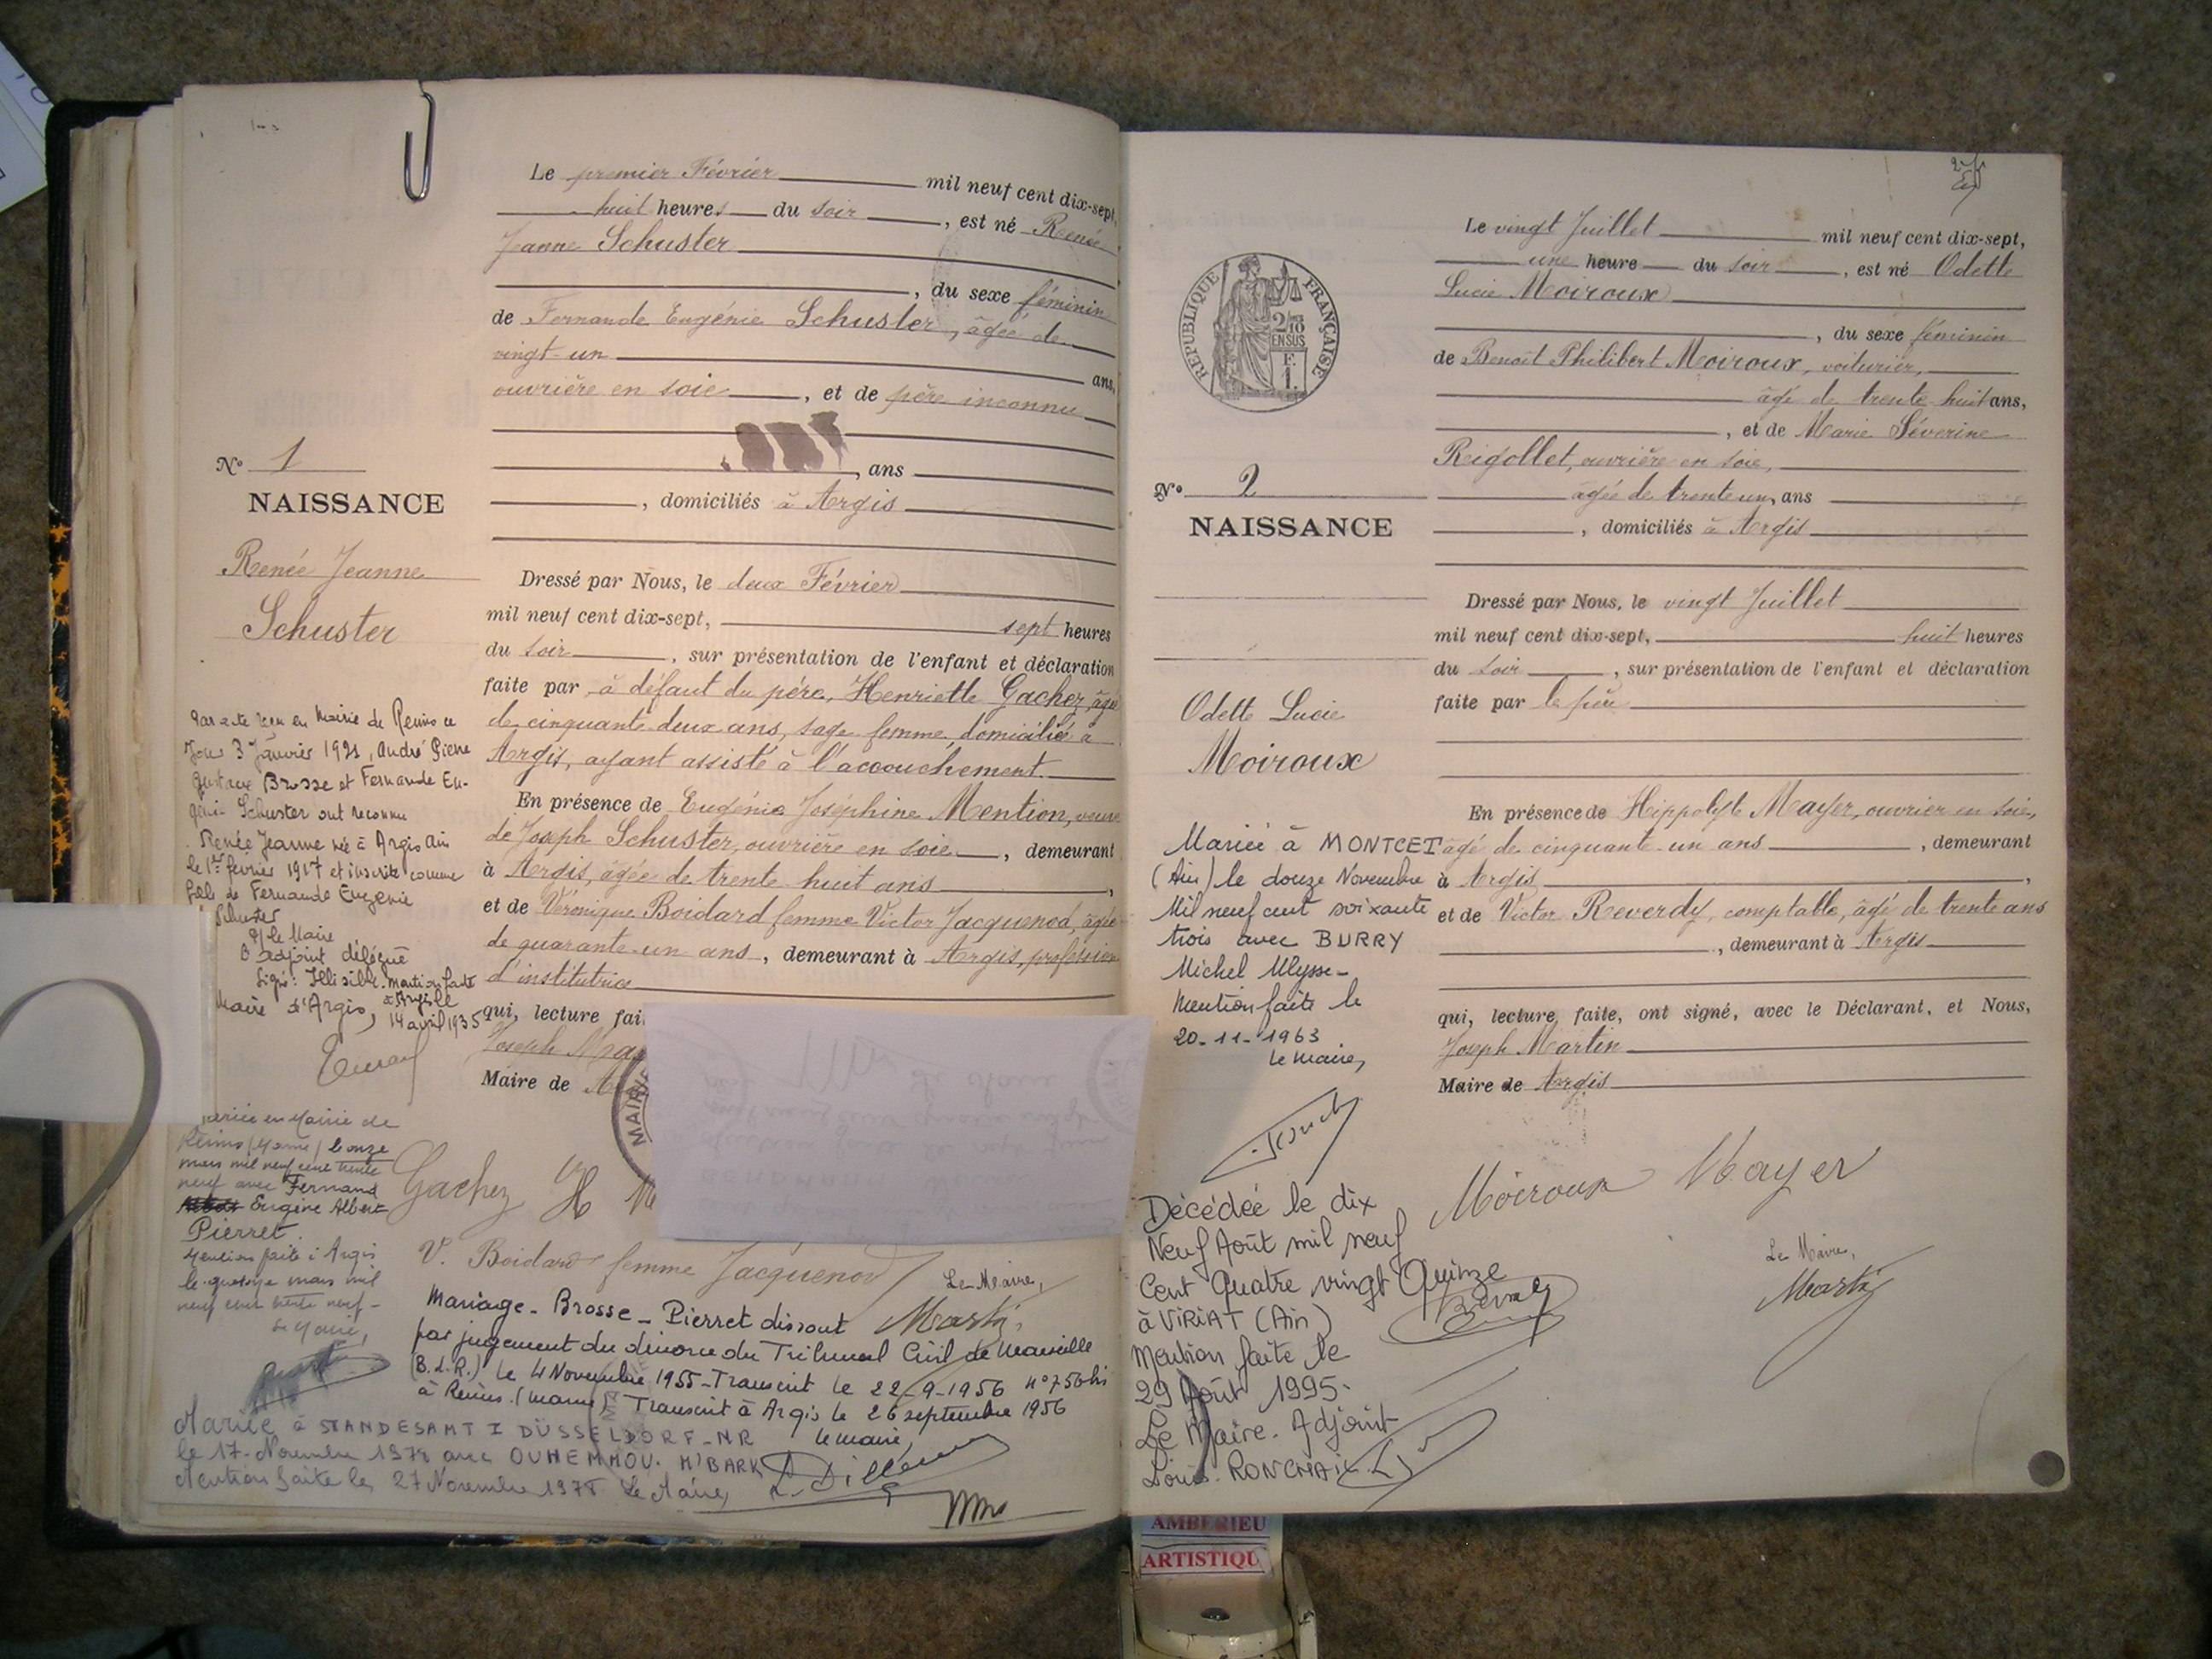 Le premier Février mil neuf cent dix-sept,
huit heures du soir, est né Renée
Jeanne Schuster
, du sexe féminin
de Fernande Eugénie Schuster, âgée de
vingt-un ans,
ouvrière en soie, et de père inconnu
, ans
, domiciliés à Argis
N° 1
NAISSANCE
Renée Jeanne
Schuster
Dressé par Nous, le deux Février
mil neuf cent dix-sept, sept heures
du soir, sur présentation de l'enfant et déclaration
faite par à défaut du père, Henriette Gachez, âgée
de cinquante deux ans, sage femme, domiciliée à
Argis, ayant assisté à l'accouchement.
En présence de Eugénie Joséphine Mention, veuve
de Joseph Schuster, ouvrière en soie, demeurant
à Argis, âgée de trente huit ans,
et de Véronique Boidard femme Victor Jacquenod, âgée
de quarante-un ans, demeurant à Argis, profession
d'institutrice
qui, lecture fai
Joseph Ma
Maire de A
MAIRIE
Par acte reçu en Mairie de Reims ce
Jour 3 Janvier 1921, André Pierre
Gustave Brosse et Fernande Eu-
génie Schuster ont reconnu
Renée Jeanne née à Argis Ain
le 1er février 1917 et inscrite comme
fille de Fernande Eugénie
Schuster
P/ le Maire
adjoint délégué
Signé: Illisible. Mention faite
à Argis le
Maire d'Argis, 14 avril 1935
Mariée en Mairie de
Reims (Marne) le onze
mars mil neuf cent trente
neuf avec Fernand
Eugène Albert
Pierret.
Mention faite à Argis
le quatorze mars mil
neuf cent trente neuf-
Le Maire,
Gachez H
V. Boidard femme Jacquenod
Le Maire,
Martin
Mariage - Brosse - Pierret dissout
par jugement du divorce du Tribunal Civil de Marseille
(B.d.R.) le 4 Novembre 1955 - Transcrit le 22-9-1956 n° 756 bis
à Reims (Marne) Transcrit à Argis le 26 septembre 1956
le maire,
Mariée à STANDESAMT I DÜSSELDORF-NR
le 17 Novembre 1978 avec OUHEMMOU. M'BARK
Mention faite le 27 Novembre 1978 Le Maire,
Le vingt Juillet mil neuf cent dix-sept,
une heure du soir, est né Odette
Lucie Moiroux
, du sexe féminin
de Benoît Philibert Moiroux, voiturier,
âgé de trente huit ans,
, et de Marie Séverine
Rigollet, ouvrière en soie,
âgée de trente un, ans
, domiciliés à Argis
REPUBLIQUE FRANÇAISE
2/10
EN SUS
F.
1.
N° 2
NAISSANCE
Odette Lucie
Moiroux
Dressé par Nous, le vingt Juillet
mil neuf cent dix-sept, huit heures
du soir, sur présentation de l'enfant et déclaration
faite par le père
En présence de Hippolyte Mayer, ouvrier en soie,
âgé de cinquante-un ans, demeurant
à Argis,
et de Victor Reverdy, comptable, âgé de trente ans
, demeurant à Argis
qui, lecture faite, ont signé, avec le Déclarant, et Nous,
Joseph Martin
Maire de Argis
Mariée à MONTCET
(Ain) le douze Novembre
Mil neuf cent soixante
trois avec BURRY
Michel Ulysse-
Mention faite le
20-11-1963
le maire,
Moiroux Mayer
Le Maire,
Martin
Décédée le dix
Neuf Août mil neuf
Cent Quatre vingt Quinze
à VIRIAT (Ain)
Mention faite le
29 Août 1995.
Le Maire-Adjoint
Louis
AMBERIEU
ARTISTIQU